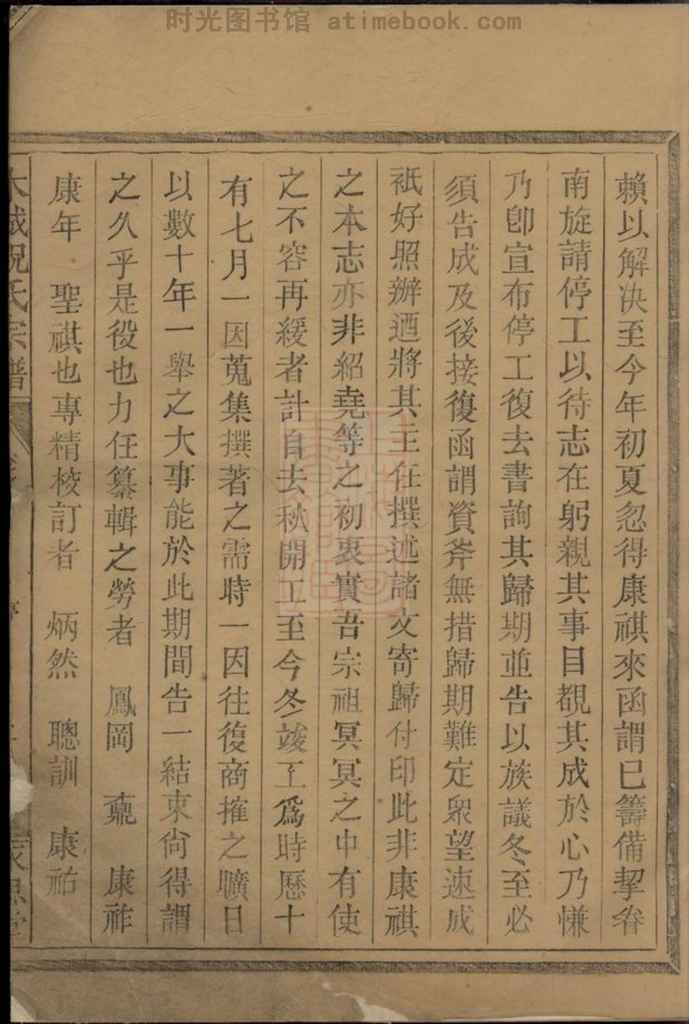 时光图书馆 atimebook.com
賴以解决至今年初夏忽得康祺來函謂已籌備挈眷
南旋請停工以待志在躬親其事目覩其成於心乃慊
乃卽宣布停工復去書詢其歸期並告以族議冬至必
須告成及後接復函謂資斧無措歸期難定衆望速成
祇好照辦迺將其主任撰述諸文寄歸付印此非康祺
之本志亦非紹堯等之初衷實吾宗祖冥冥之中有使
之不容再緩者計自去秋開工至今冬竣工爲時歷十
有七月一因蒐集撰著之需時一因往復商搉之曠日
以數十年一舉之大事能於此期間告一結束尙得謂
之久乎是役也力任纂輯之勞者 鳳岡 康祚
康年 聖祺也專精校訂者 炳然 聰訓 康祐
氏宗譜